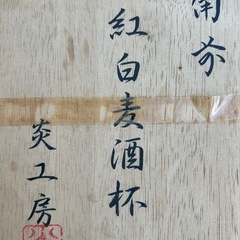 備前
紅白麦酒杯
炎工房